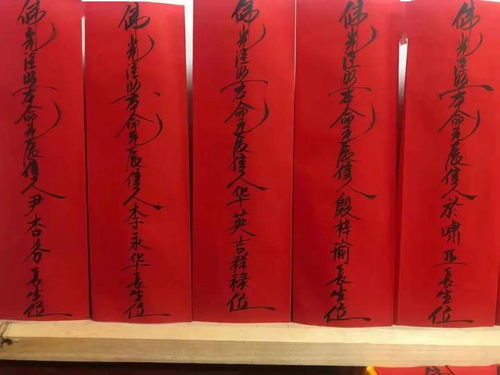 佛光注照本命元辰信人於嘯亚長生位
佛光注照本命元辰信人殷梓瑜長生位
佛光注照本命元辰信人华英吉祥禄位
佛光注照本命元辰信人李永华長生位
佛光注照本命元辰信人尹杏芬長生位